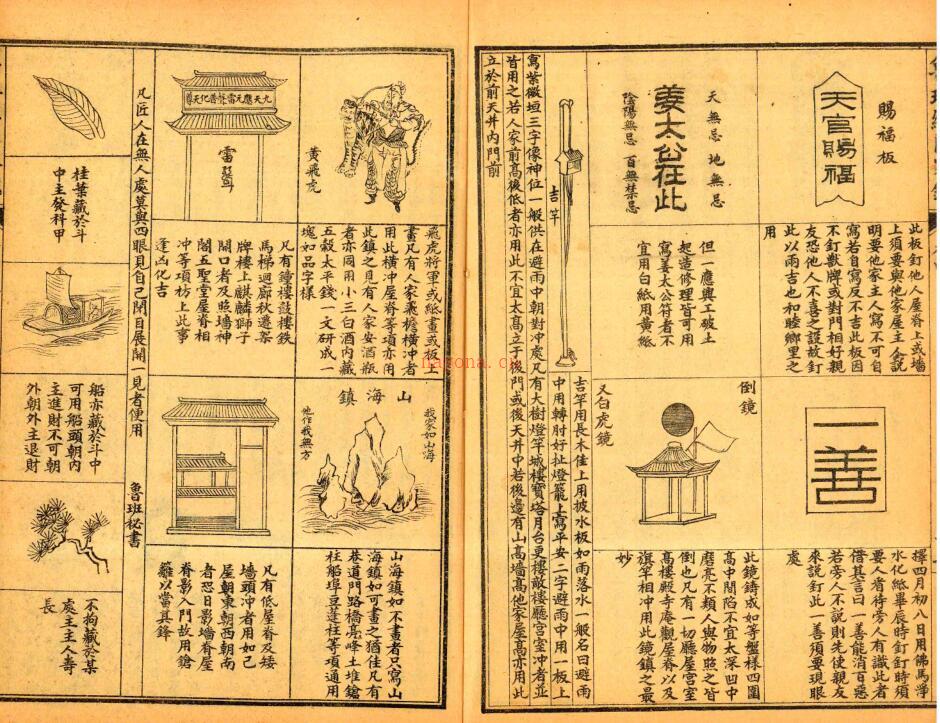 賜福板
天官賜福
此板釘他人屋脊上或牆
上須要與他家屋主仝說
明要他家主人寫不可自
寫若自寫反不吉此板因
不釘獸牌或對門相好親
友恐他人不喜之設故釘
此以兩吉也和睦鄉里之
用
一善
擇四月初八日用佛馬淨
水化紙畢辰時釘釘時須
要人看待旁人有識此者
借其言曰一善能消百惡
若旁人不說則先使親友
來說釘此一善須要現眼
處
天無忌 地無忌
姜太公在此
陰陽無忌 百無禁忌
但一應興工破土
起造修理皆可用
寫姜太公符者不
宜用白紙用黄紙
倒鏡
又白虎鏡
此鏡鑄成如等盤樣四圍
高中間陷不宜太深凹中
磨亮不類人與物照之皆
倒也凡有一切廳屋宮室
高樓殿寺庵觀屋脊以及
旗竿相冲用此鏡鎮之最
妙
吉竿
吉竿用長木佳上用披水板如雨落水一般名曰避雨
中用轉肘好扯燈籠上寫平安二字避雨中用一板上
寫紫微垣三字像神位一般供在避雨中朝對冲處凡有大樹燈竿城樓寶塔月台更樓敵樓廳宮室冲者並
皆用之若人家前高後低者亦用此不宜太高立于後門或後天井中若後邊有山高牆高他家屋高亦用此
立於前天井內門前
黃飛虎
飛虎將軍或紙畫或板上
畫凡有人家飛檐橫冲者
用此橫冲屋脊等項亦用
此鎮之見有人家安酒瓶
者亦同用小三白酒內藏
五穀太平錢一文研成一
塊如品字樣
山海鎮
我家如山海
他作我無方
山海鎮如不畫者只寫山
海鎮如可畫之猶佳凡有
巷道門路橋亮峰土堆鎗
柱船埠豆蓬柱等項通用
九天應元雷聲普化天尊
凡有鐘樓鼓樓鉄
馬梯迴廊秋遷架
牌樓上麒麟獅子
開口者及照墻神
閣五聖堂屋脊相
冲等項枋上此事
逢凶化吉
凡有低屋脊及矮
墻頭冲者用如己
屋朝東朝西朝南
者恐日影墻脊屋
脊影入門故用鎗
籬以當其鋒
凡匠人在無人處莫與四眼見自己閉目展開一見者便用
魯班秘書
桂葉藏於斗
中主發科甲
船亦藏於斗中
可用船頭朝內
主進財不可朝
外朝外主退財
不拘藏於某
處主主人壽
長